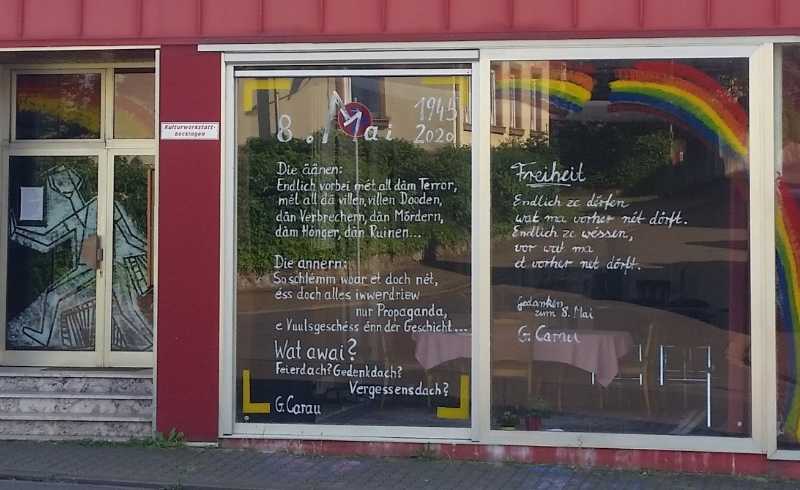 Kulturwerkstatt-
beckingen
8. Mai 1945
2020
Die äänen:
Endlich vorbei mét all däm Terror,
mét all dä villen, villen Dooden,
dän Verbrechern, dän Mördern,
däm Hónger, dän Ruinen...
Die annern:
So schlémm woar et doch nét,
éss doch alles iwwerdriew
nur Propaganda,
e Vuulsgeschéss énn der Geschicht...
Wat awai?
Feierdach? Gedenkdach?
Vergessensdach?
G. Carau
Freiheit
Endlich ze dérfen
wat ma vorher nét dórft.
Endlich ze wéssen,
vor wat ma
et vorher net dórft.
Gedanken
zum 8. Mai
G. Carau